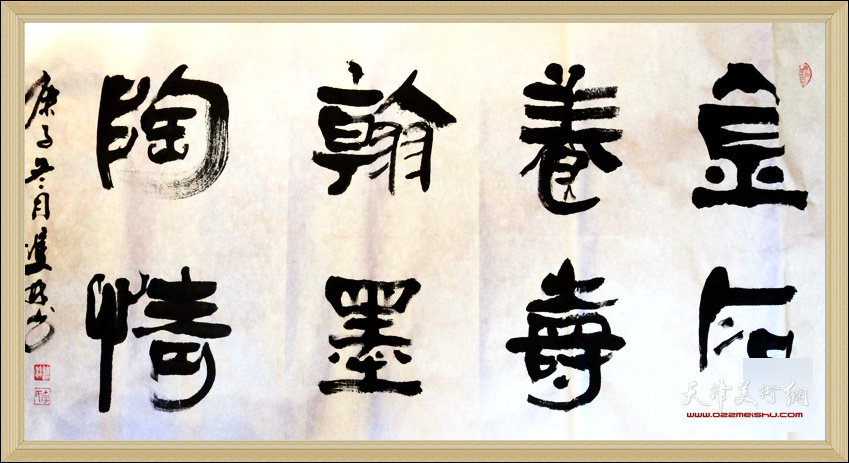 金石
養壽
翰墨
陶情
庚子冬月雙林书
天津美術網
www.022meishu.com